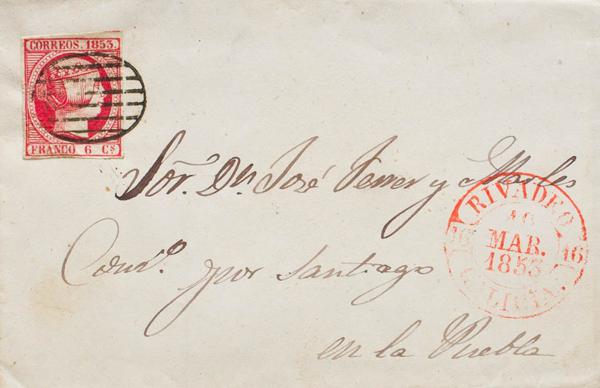 CORREOS. 1853.
FRANCO 6 Cs
Sor. Dn. José Ferrer y
por Santiago
en la Puebla
RIVADEO.
16
MAR.
1853
16
GALICIA.